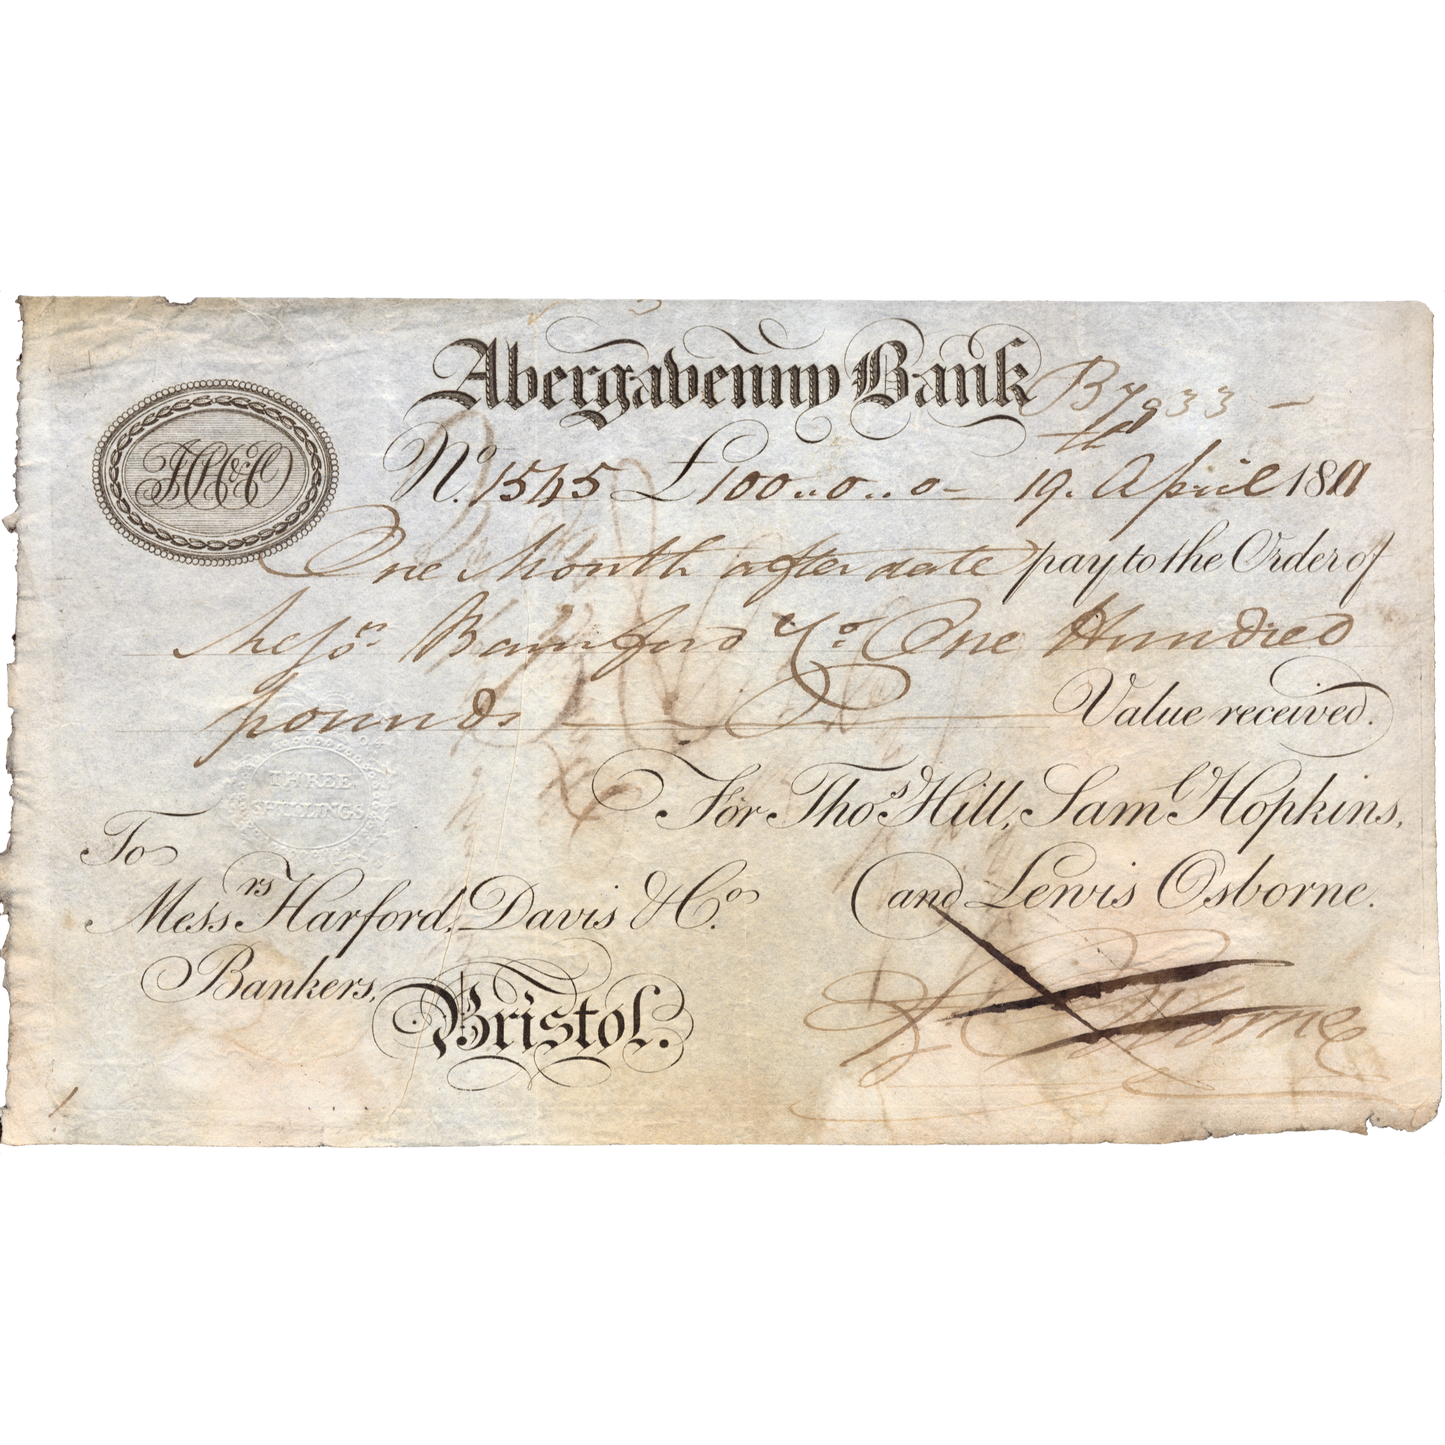 Abergavenny Bank
By 933 —
No. 1545 £100..0..0— 19. April 1811
One Month after date pay to the Order of
Messrs Bamford & Co. One Hundred
pounds Value received.
For Thos Hill, Saml Hopkins,
and Lewis Osborne.
THREE
SHILLINGS
To
Messrs Harford, Davis & Co.
Bankers,
Bristol.
Osborne